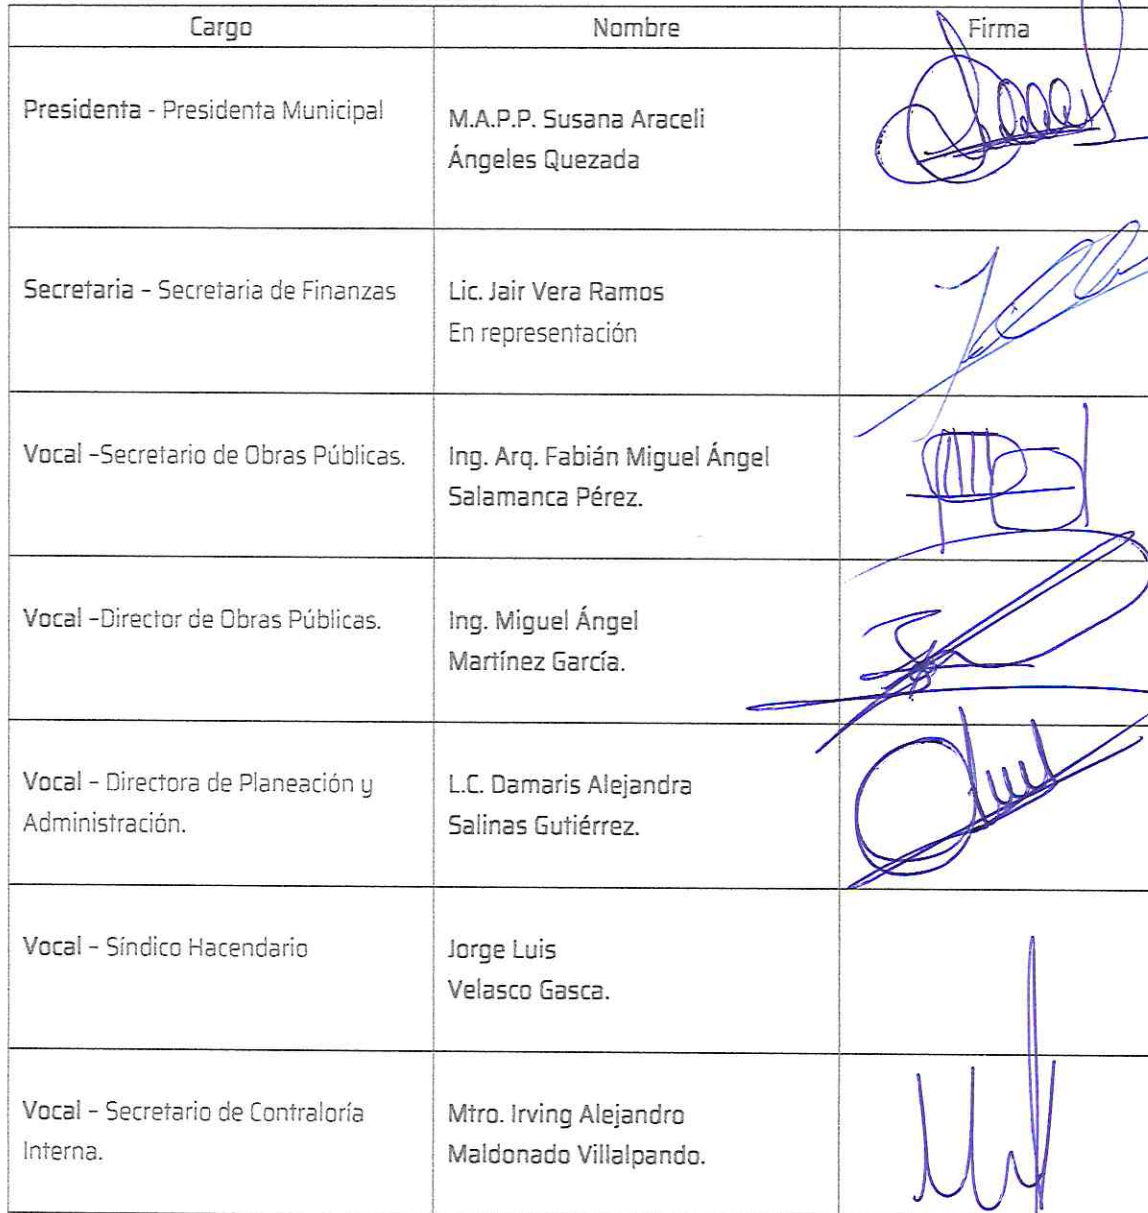 Cargo Nombre Firma
Presidenta - Presidenta Municipal
M.A.P.P. Susana Araceli
Ángeles Quezada
Secretaria – Secretaria de Finanzas
Lic. Jair Vera Ramos
En representación
Vocal –Secretario de Obras Públicas.
Ing. Arq. Fabián Miguel Ángel
Salamanca Pérez.
Vocal –Director de Obras Públicas.
Ing. Miguel Ángel
Martínez García.
Vocal – Directora de Planeación y
Administración.
L.C. Damaris Alejandra
Salinas Gutiérrez.
Vocal – Síndico Hacendario
Jorge Luis
Velasco Gasca.
Vocal – Secretario de Contraloría
Interna.
Mtro. Irving Alejandro
Maldonado Villalpando.